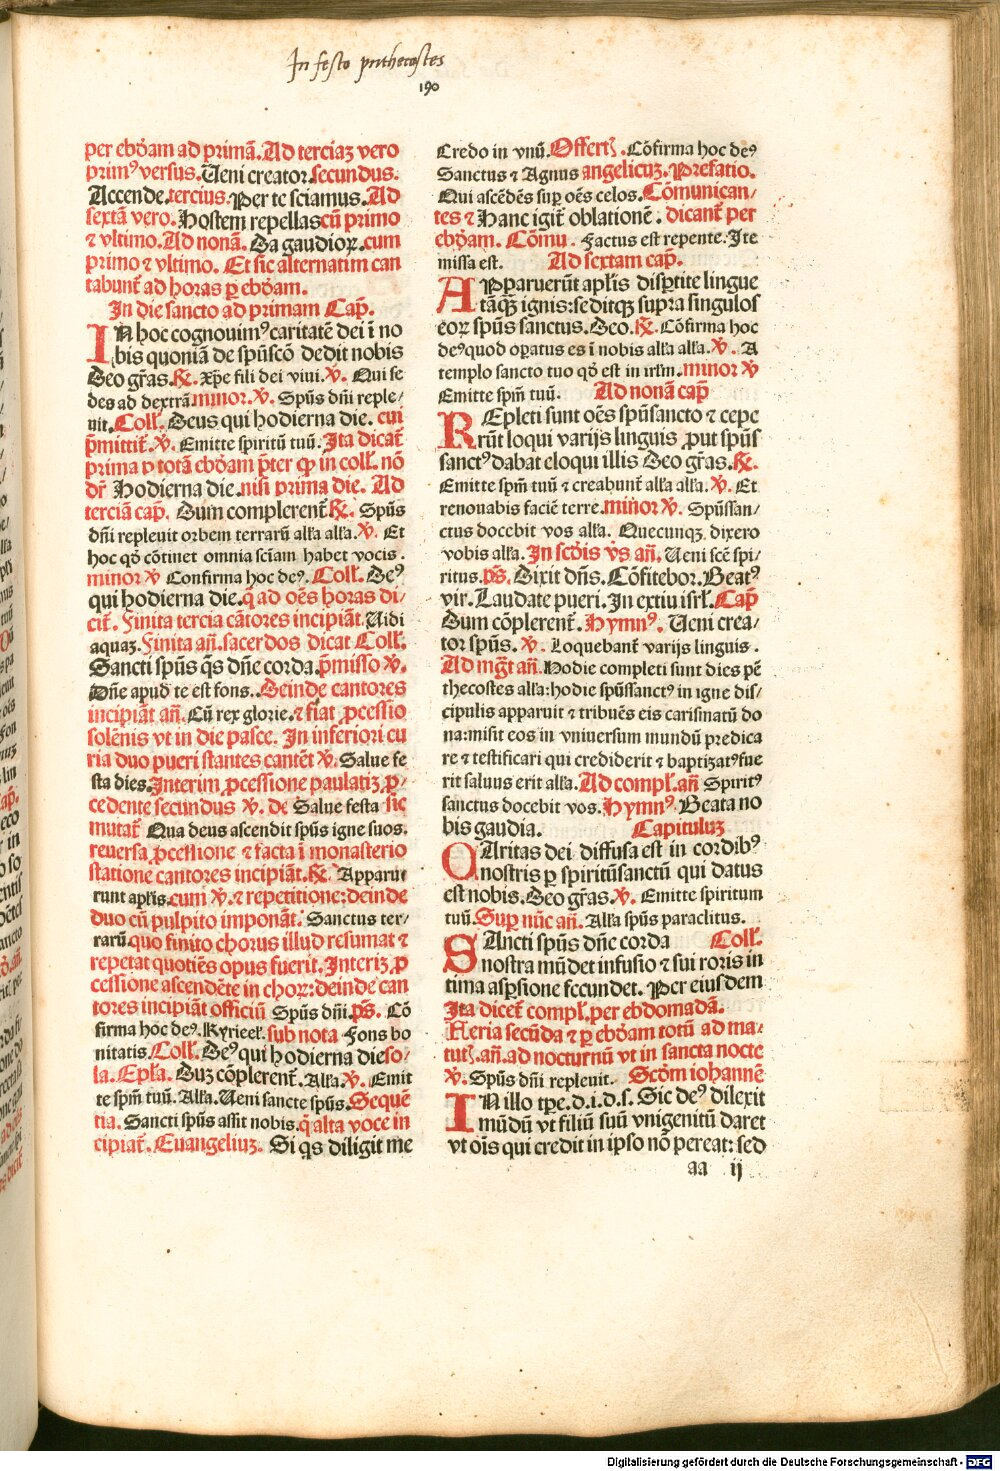 In festo pnthecostes
190
per ebdõam ad primã. Ad terciaʒ vero
primꝰ versus. Ueni creator. secundus.
Accende. tercius. Per te sciamus. Ad
sextã vero. Hostem repellas cũ primo
⁊ vltimo. Ad nonã. Da gaudioꝝ. cum
primo ⁊ vltimo. Et sic alternatim can
tabunt᷑ ad horas ꝑ ebdõam.
In die sancto ad primam Cap̃.
IN hoc cognouimꝰ caritatẽ dei ĩ no
bis quoniã de spũscõ dedit nobis
Deo gr̃as. ℞. Xp̃e fili dei viui. ℣. Qui se
des ad dextrã minor. ℣. Spũs dñi reple/
uit. Coll̃. Deus qui hodierna die. cui
p̃mittit᷑. ℣. Emitte spiritũ tuũ. Ita dicat᷑
prima ꝑ totã ebdõam p̃ter ꝙ in coll̃. nõ
dr̃ Hodierna die. nisi prima die. Ad
terciã cap̃. Dum complerent᷑ ℞. Spũs
dñi repleuit orbem terrarũ al̃la al̃la. ℣. Et
hoc qd̃ cõtinet omnia sciam̃ habet vocis.
minor ℣ Confirma hoc deꝰ. Coll̃. Deꝰ
qui hodierna die. q̃ ad oẽs horas di/
cit᷑. Finita tercia cãtores incipiãt. Uidi
aquaʒ. Finita añ. sacerdos dicat Coll̃.
Sancti spũs q̃s dñe corda. p̃misso ℣.
Dñe apud te est fons. Deinde cantores
incipiãt añ. Cũ rex glorie. ⁊ fiat ꝓcessio
solẽnis vt in die pasce. In inferiori cu
ria duo pueri stantes cantẽt ℣. Salue fe
sta dies. Interim ꝓcessione paulatiʒ ꝓ/
cedente secundus ℣. de Salue festa sic
mutat᷑ Qua deus ascendit spũs igne suos.
reuersa ꝓcessione ⁊ facta ĩ monasterio
statione cantores incipiãt. ℞. Apparue
runt apl̃is. cum ℣. ⁊ repetitione: deinde
duo cũ pulpito imponãt. Sanctus ter/
rarũ. quo finito chorus illud resumat ⁊
repetat quotiẽs opus fuerit. Interiʒ ꝓ
cessione ascendẽte in choꝝ: deinde can
tores incipiãt officiũ Spũs dñi. p̃s. Cõ
firma hoc deꝰ. Kyrieel̃. sub nota Fons bo
nitatis. Coll̃. Deꝰ qui hodierna die so/
la. Epl̃a. Duʒ cõplerent᷑. Al̃la. ℣. Emit
te spm̃ tuũ. Al̃la. Ueni sancte spũs. Sequẽ
tia. Sancti spũs assit nobis. q̃ alta voce in
cipiat᷑. Euangeliuʒ. Si q̃s diligit me
Credo in vnũ. Offert᷑. Cõfirma hoc deꝰ
Sanctus ⁊ Agnus angelicuʒ. Prefatio.
Qui ascẽdẽs suꝑ oẽs celos. Cõmunican/
tes ⁊ Hanc igit᷑ oblationẽ. dicant᷑ per
ebdõam. Cõmu. Factus est repente. Ite
missa est. Ad sextam cap̃.
APparuerũt apl̃is disꝑtite lingue
tãꝗ̃ ignis: seditꝗ supra singulos
eoꝝ spũs sanctus. Deo. ℞. Cõfirma hoc
deꝰ quod oꝑatus es ĩ nobis al̃la al̃la. ℣. A
templo sancto tuo qd̃ est in irl̃m. minor ℣
Emitte spm̃ tuũ. Ad nonã cap̃
REpleti sunt oẽs spũsancto ⁊ cepe
rũt loqui varijs linguis ꝓut spũs
sanctꝰ dabat eloqui illis Deo gr̃as. ℞.
Emitte spm̃ tuũ ⁊ creabunt᷑ al̃la al̃la. ℣. Et
renouabis faciẽ terre. minor ℣. Spũssan/
ctus docebit vos al̃la. Quecunqʒ dixero
vobis al̃la. In scd̃is v̾s añ. Ueni scẽ spi/
ritus. p̃s. Dixit dñs. Cõfitebor. Beatꝰ
vir. Laudate pueri. In exitu isrl̃. Cap̃
Dum cõplerent᷑. Hymnꝰ. Ueni crea/
tor spũs. ℣. Loquebant᷑ varijs linguis.
Ad mg̃t añ. Hodie completi sunt dies pẽ
thecostes al̃la: hodie spũssanctꝰ in igne dis/
cipulis apparuit ⁊ tribuẽs eis carismatũ do
na: misit eos in vniuersum mundũ predica
re ⁊ testificari qui crediderit ⁊ baptiʒatꝰ fue
rit saluus erit al̃la. Ad compl̃. añ Spiritꝰ
sanctus docebit vos. Hymnꝰ. Beata no
bis gaudia. Capituluʒ
CAritas dei diffusa est in cordibꝰ
nostris ꝑ spiritũsanctũ qui datus
est nobis. Deo gr̃as. ℣. Emitte spiritum
tuũ. Suꝑ nũc añ. Al̃la spũs paraclitus.
SAncti spũs dñe corda Coll̃.
nostra mũdet infusio ⁊ sui roris in
tima asꝑsione fecundet. Per eiusdem
Ita dicet᷑ compl̃. per ebdomadã.
Feria secũda ⁊ ꝑ ebdõam totũ ad ma/
tut᷑. añ. ad nocturnũ vt in sancta nocte
℣. Spũs dñi repleuit. Scd̃m iohannẽ
IN illo tp̃e. d. i. d. s. Sic deꝰ dilexit
mũdũ vt filiũ suũ vnigenitũ daret
vt oĩs qui credit in ipso nõ pereat: sed
aa ij
Digitalisierung gefördert durch die Deutsche Forschungsgemeinschaft - DFG